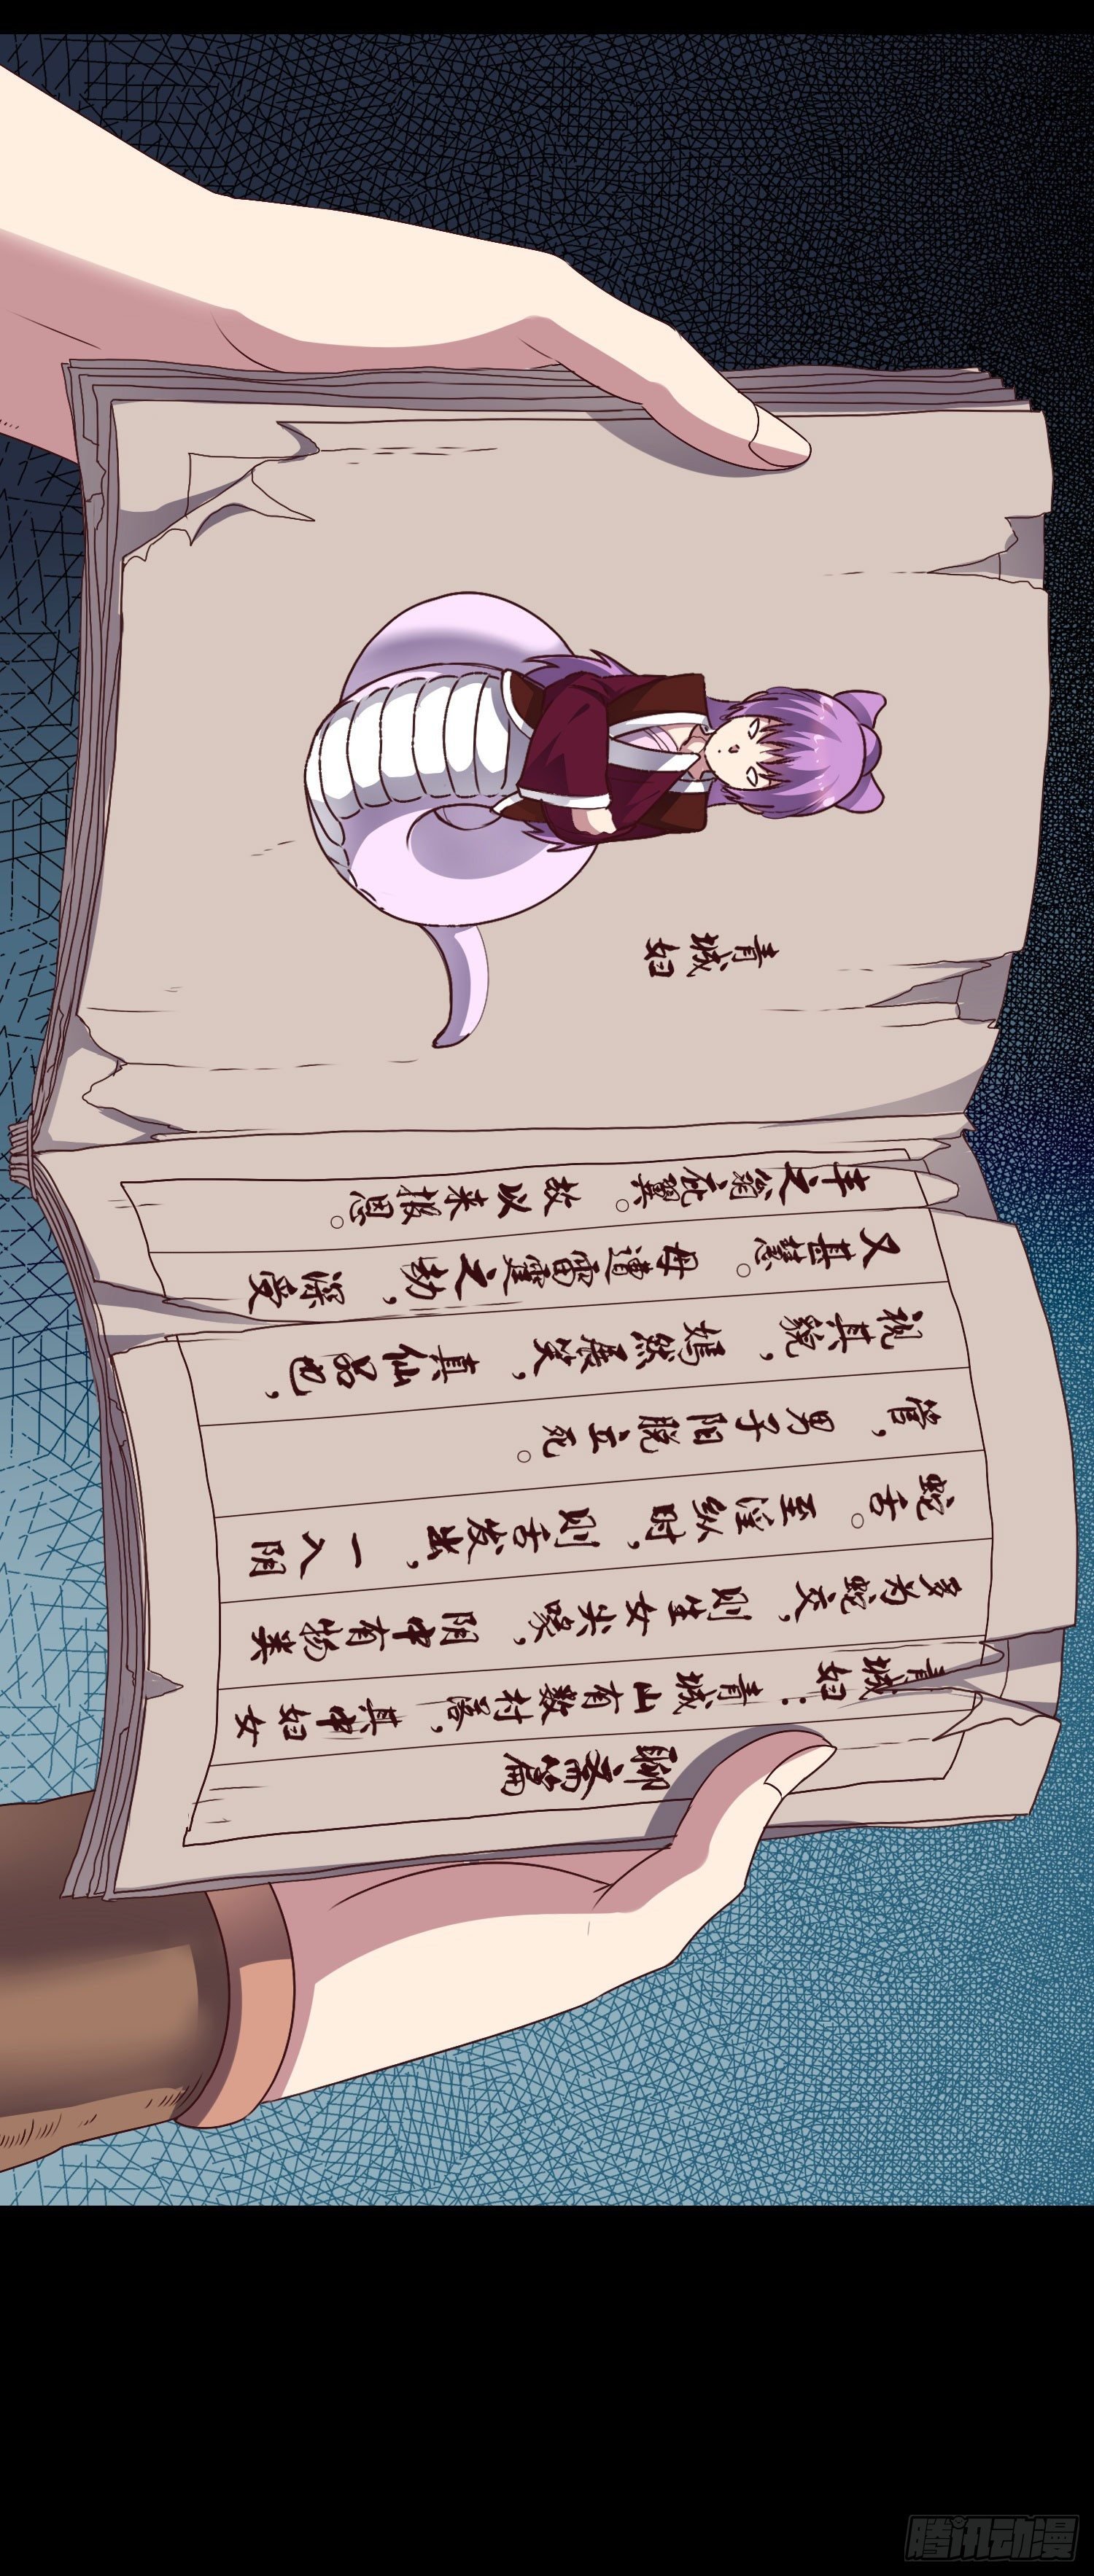 聊斋篇
青城妇:青城山有数村落,其中妇女
多为蛇交,则生女尖喙,阴中有物类
蛇舌。至淫纵时,则舌发出,一入阴
管,男子阳脱立死。
视其貌,嫣然展笑,真仙品也,
又甚慧。母遭雷霆之劫,深受
丰之翁庇翼。故以来报恩。
青城妇
腾讯动漫